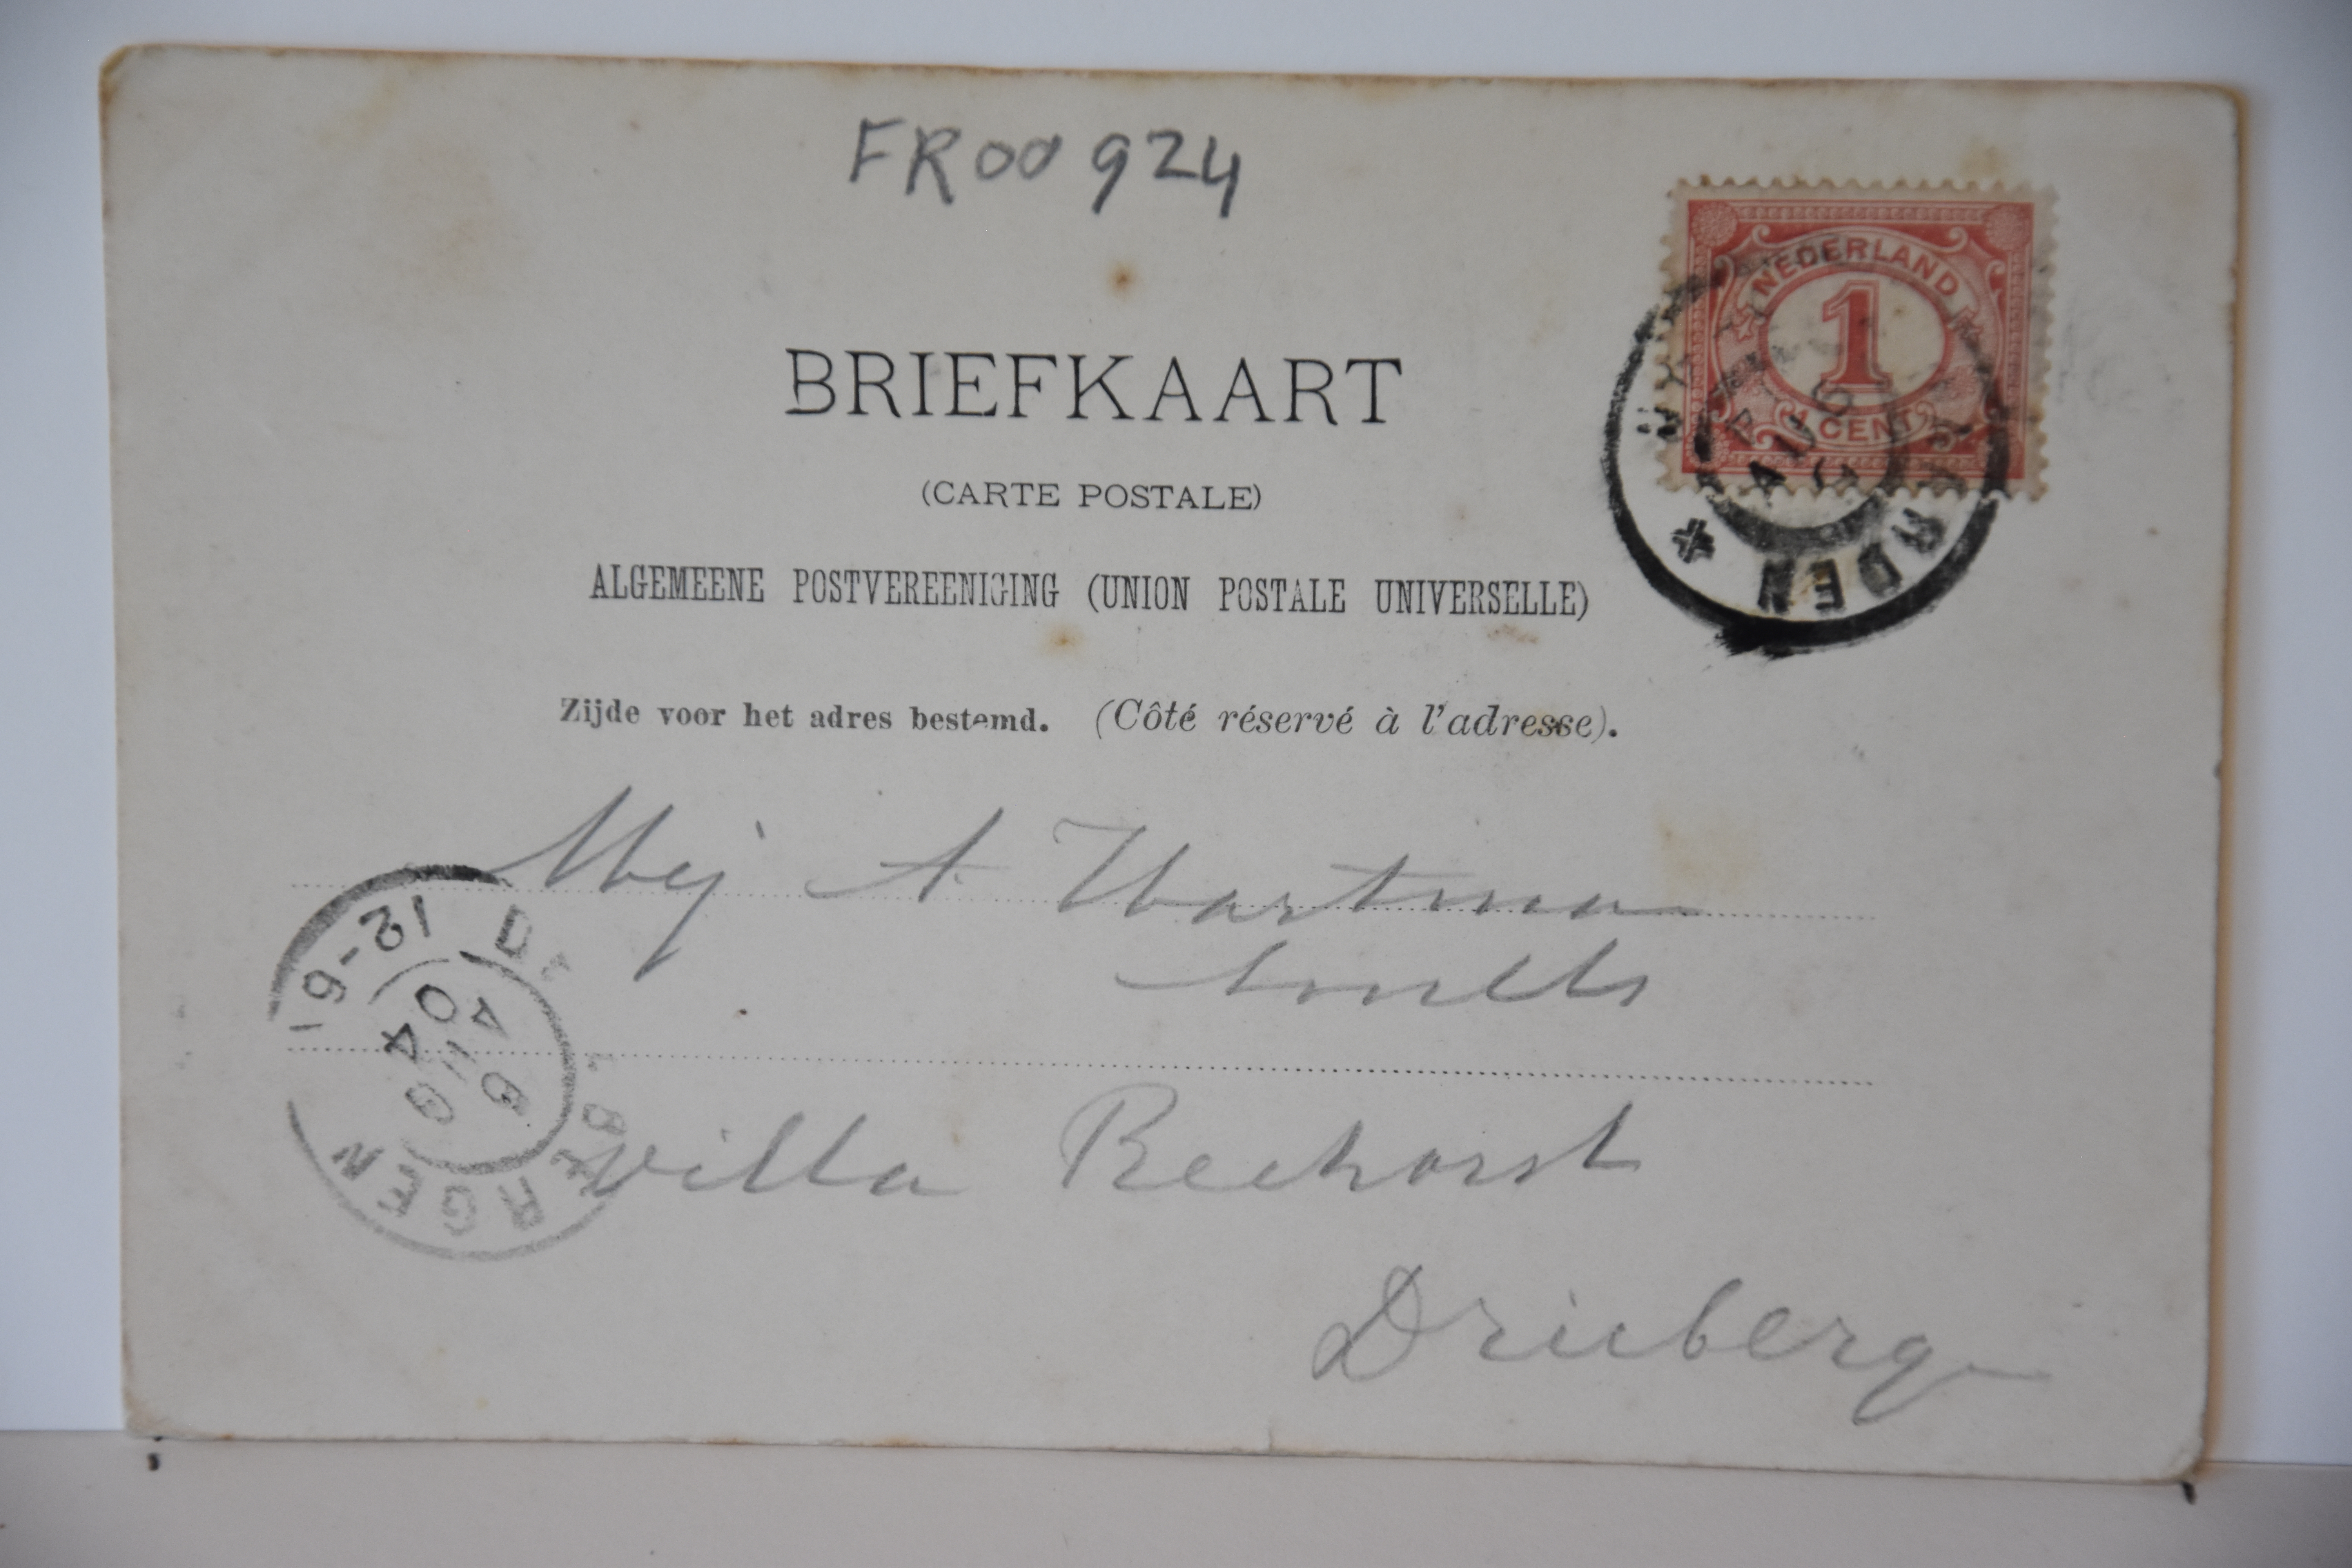 FR00924
NEDERLAND
1
CENT
BRIEFKAART
(CARTE POSTALE)
ALGEMEENE POSTVEREENIGING (UNION POSTALE UNIVERSELLE)
Zijde voor het adres bestemd. (Côté réservé à l'adresse).
Mej A Hartman
Smelts
Villa Beehorst
Drieberg
AUG
RDEN *
12-6
6 AUG
04
BERGEN